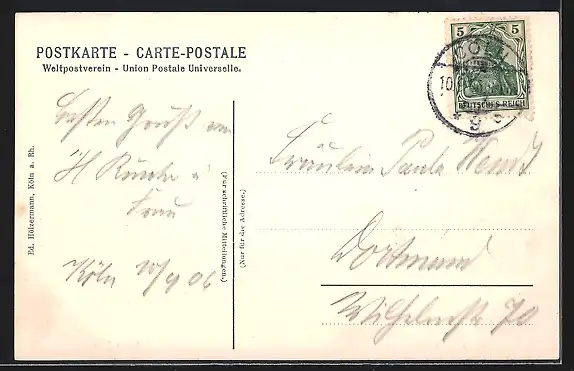 POSTKARTE - CARTE-POSTALE
Weltpostverein - Union Postale Universelle.
Besten Gruß von
H
Frau
Köln 10/9 06
Ed. Hölzermann, Köln a. Rh.
(Für schriftliche Mitteilungen.)
(Nur für die Adresse.)
5 5
DEUTSCHES REICH
CÖLN
10
9
Fräulein Paula Wendt
Dortmund
Wilhelmstr 70